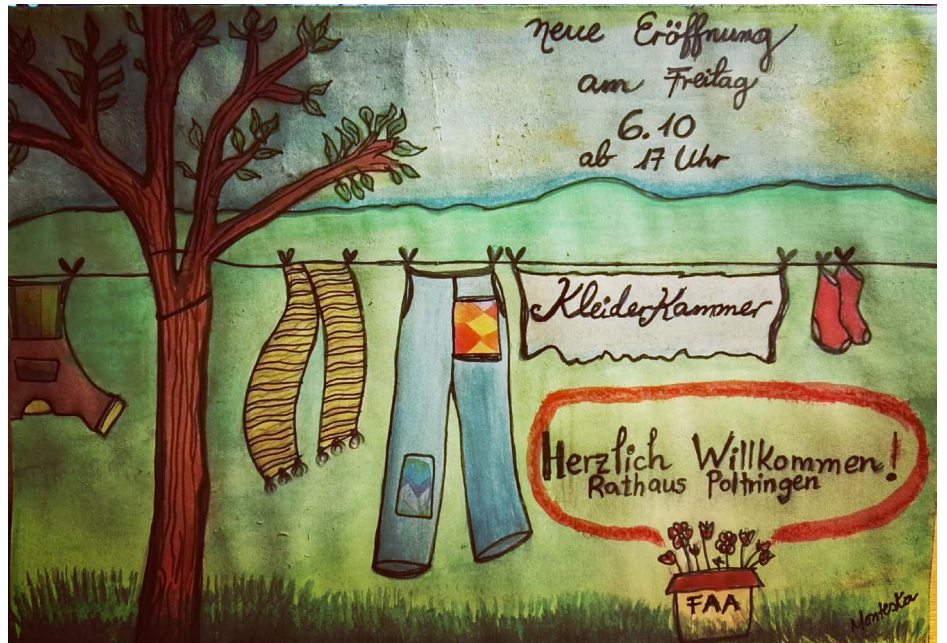 neue Eröffnung
am Freitag
6.10
ab 17 Uhr
KleiderKammer
Herzlich Willkommen!
Rathaus Poltringen
FAA